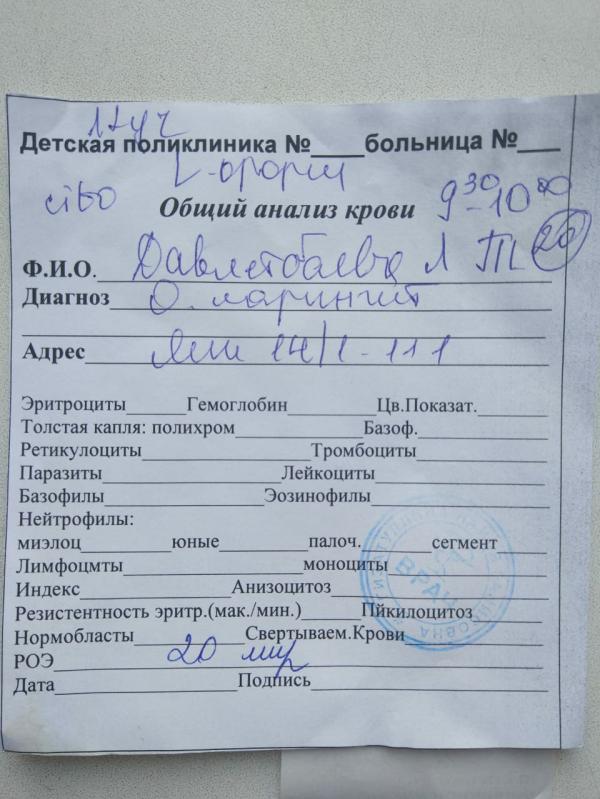 12 уч
Детская поликлиника №____больница №___
L-форм
cito Общий анализ крови 9 30 - 10 00
Ф.И.О. Давлетбаева Л Т 20
Диагноз О. ларингит
Адрес 14/1-111
Эритроциты______Гемоглобин_________Цв.Показат.
Толстая капля: полихром_____________Базоф.
Ретикулоциты_________________Тромбоциты
Паразиты__________________Лейкоциты
Базофилы________________Эозинофилы
Нейтрофилы:
миэлоц_________юные_________палоч.______сегмент
Лимфоцмты__________________моноциты
Индекс_______________Анизоцитоз
Резистентность эритр.(мак./мин.)______Пйкилоцитоз
Нормобласты___________Свертываем.Крови
РОЭ 20
Дата__________________Подпись
ВРАЧ